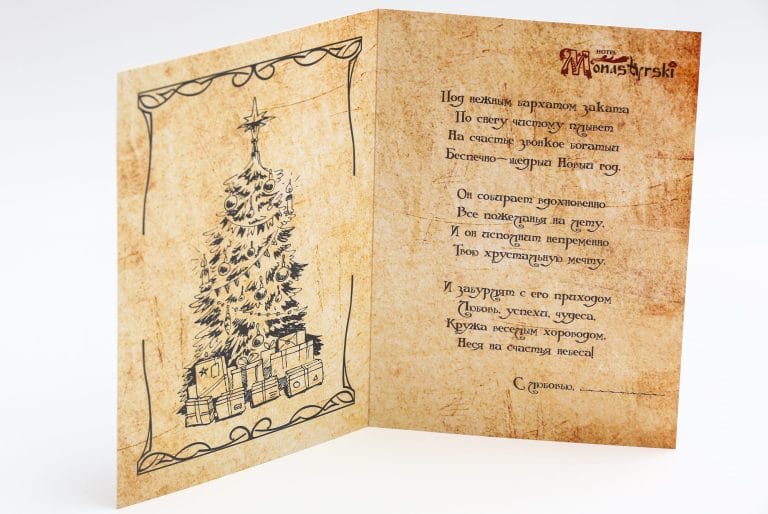 HOTEL
Monastyrski
Под нежным бархатом заката
По снегу чистому плывет
На счастье звонкое богатый
Беспечно-щедрый Новый год.
Он собирает вдохновенно
Все пожеланья на лету,
И он исполнит непременно
Твою хрустальную мечту.
И забурлят с его приходом
Любовь, успехи, чудеса,
Кружа веселым хороводом,
Неся на счастья небеса!
С любовью, ____________